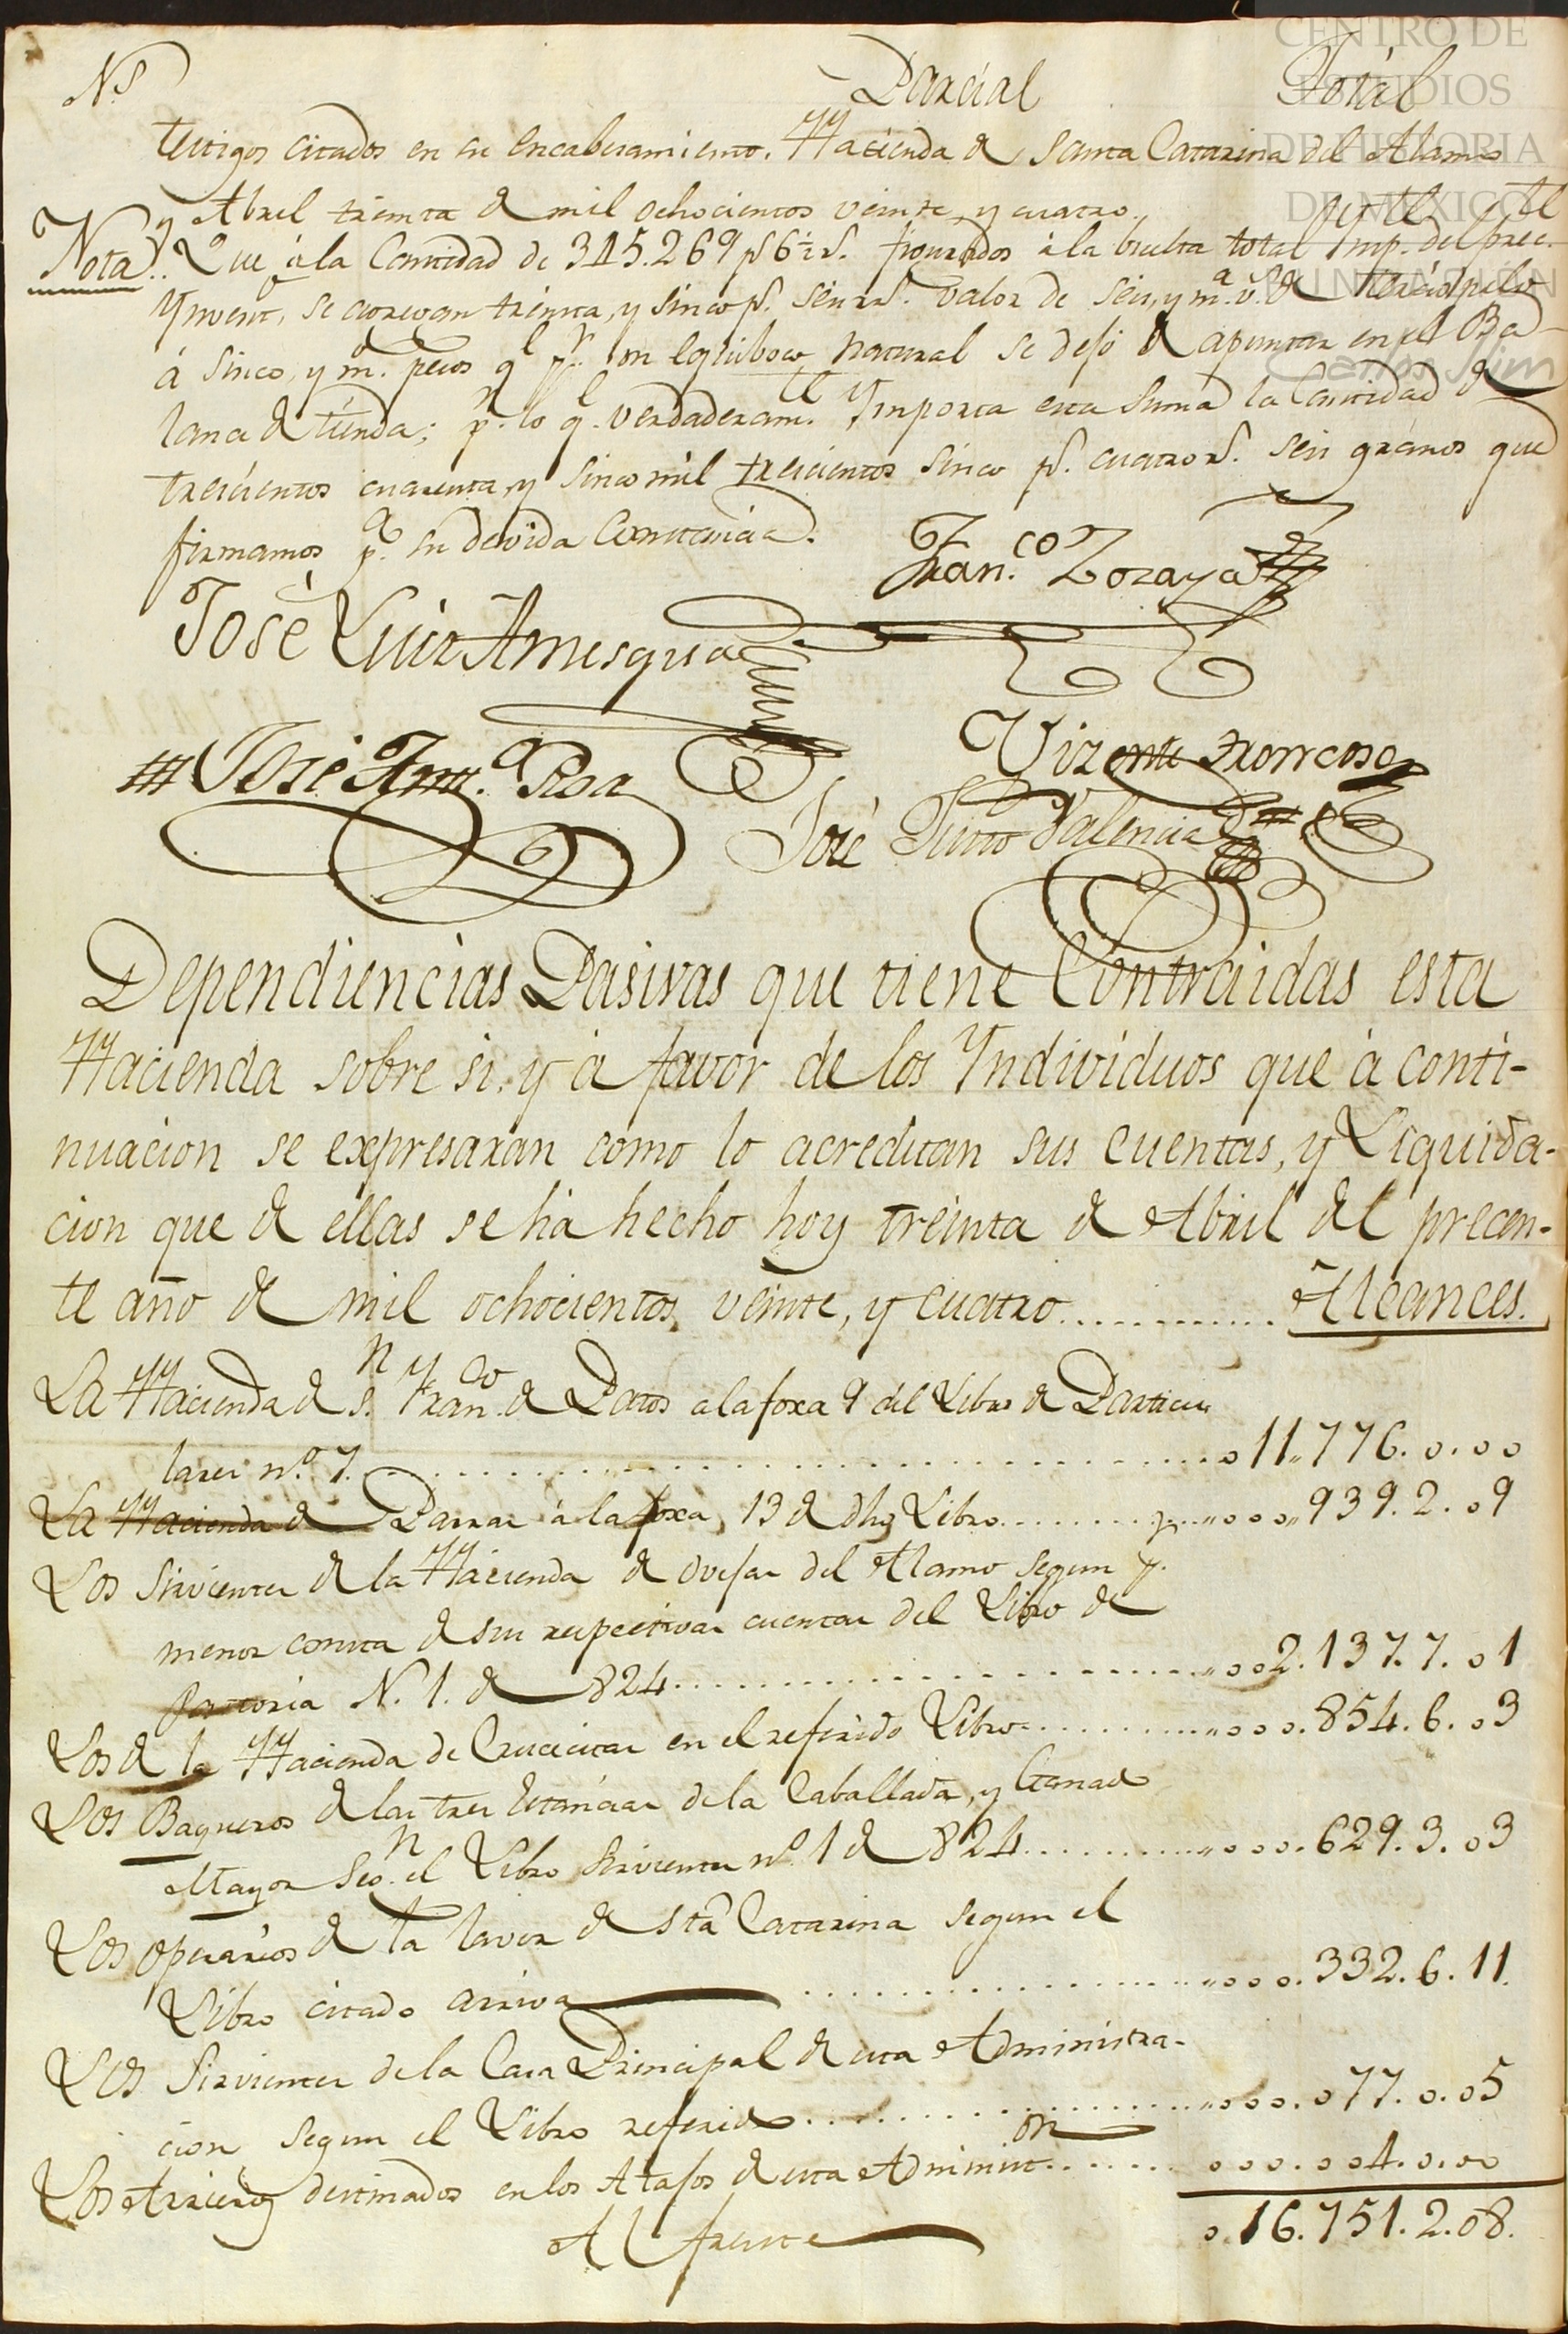 N.s Parcial Totál
testigos citados en su encabesamiento. Hacienda de Santa Catarina del Alamo
y Abril treinta de mil ochocientos veinte, y cuatro.
Nota.. Que á la Cantidad de 345.269 p.s 6½ r.s figurados á la buelta total Imp.te del prec.te
Ynvent.o se agregan treinta, y sinco p.s seis r.s valor de seis, y m.a v.s de terciopelo
á sinco, y m.o pesos q.e p.r un equiboco natural se dejó de apuntar en el Ba-
lanse de tienda; p.r lo q.e verdaderam.te Ymporta esta Suma la Cantidad de
trescientos cuarenta, y sinco mil trescientos sinco p.s cuatro r.s seis granos que
firmamos p.a su devida Constancia.
Fran.co Lozaya
José Luis Amesqua
Vizente Troncoso
José Ant.o Rosa
José Justo Valencia
Dependiencias Pasivas que tiene Contraidas esta
Hacienda sobre si, y á favor de los Yndividuos que á conti-
nuacion se expresaran como lo acreditan sus cuentas, y Liquida-
cion que de ellas se há hecho hoy treinta de Abril del precen-
te año de mil ochocientos, veinte, y cuatro............ Alcances.
La Hacienda de S.n Fran.co de Patos a la foxa 9 del Libro de Particu
lares n.o 7. .......... 11,,776.0.00
La Hacienda de Parras á la foxa, 13 de dho Libro.......... 000,,939.2.09
Los Sirvientes de la Hacienda de ovejas del Alamo segun p.
menor consta de sus respectivas cuentas del Libro de
Pastoria N. 1. de 824.......... 002.137.7.01
Los de la Hacienda de Crucecitas en el referido Libro.......... 000.854.6.03
Los Baqueros de las tres Estancias de la Caballada, y Ganado
Mayor Seg.n el Libro Sirvientes n.o 1 de 824.......... 000.629.3.03
Los operarios de la lavor de Sta Catarina segun el
Libro citado arriva .......... 000.332.6.11.
Los Sirvientes de la Casa Principal de esta Administra-
cion, segun el Libro referido.......... 000.077.0.05
Los Arrieros destinados en los Atajos de esta Administ.on....... 000.004.0.00
Al frente 0.16.751.2.08.
CENTRO DE
ESTUDIOS
DE HISTORIA
DE MEXICO
FUNDACIÓN
Carlos Slim